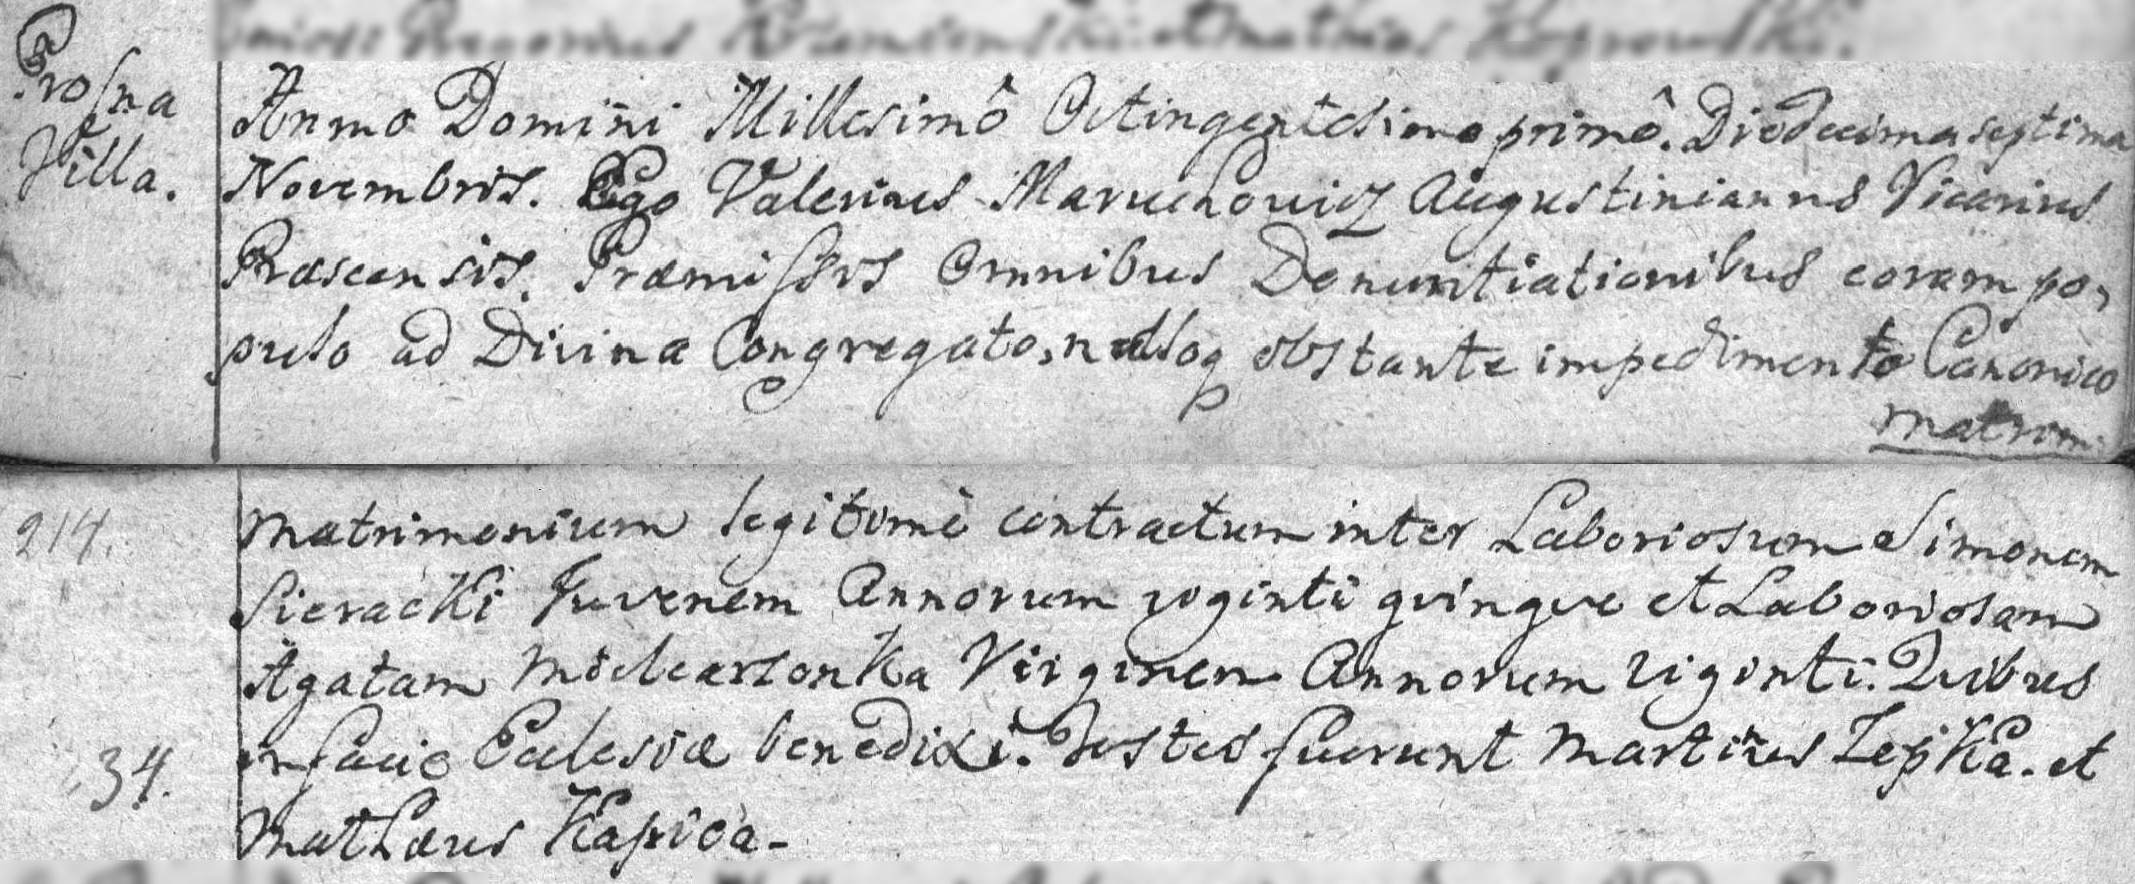 Prosna
Villa.
Anno Domini Millesimô Octingentesimo primô. Die decima septima
Novembris. Ego Valerius Maruchowicz Augustinianus Vicarius
Præscensis. Præmissis Omnibus Denuntiationibus coram po,
pulo ad Divina Congregato, nulloq obstante impedimento Canonico
matrim
214.
Matrimonium legitimè contractum inter Laboriosum Simonem
Sieracki Juvenem Annorum viginti qvinqve et Laboriosam
Agatam Virginem Annorum viginti. Quibus
in facie Eclesiæ benedixi. Testes fuerunt Martinus Zepka. et
34.
Mathæus Kapica-